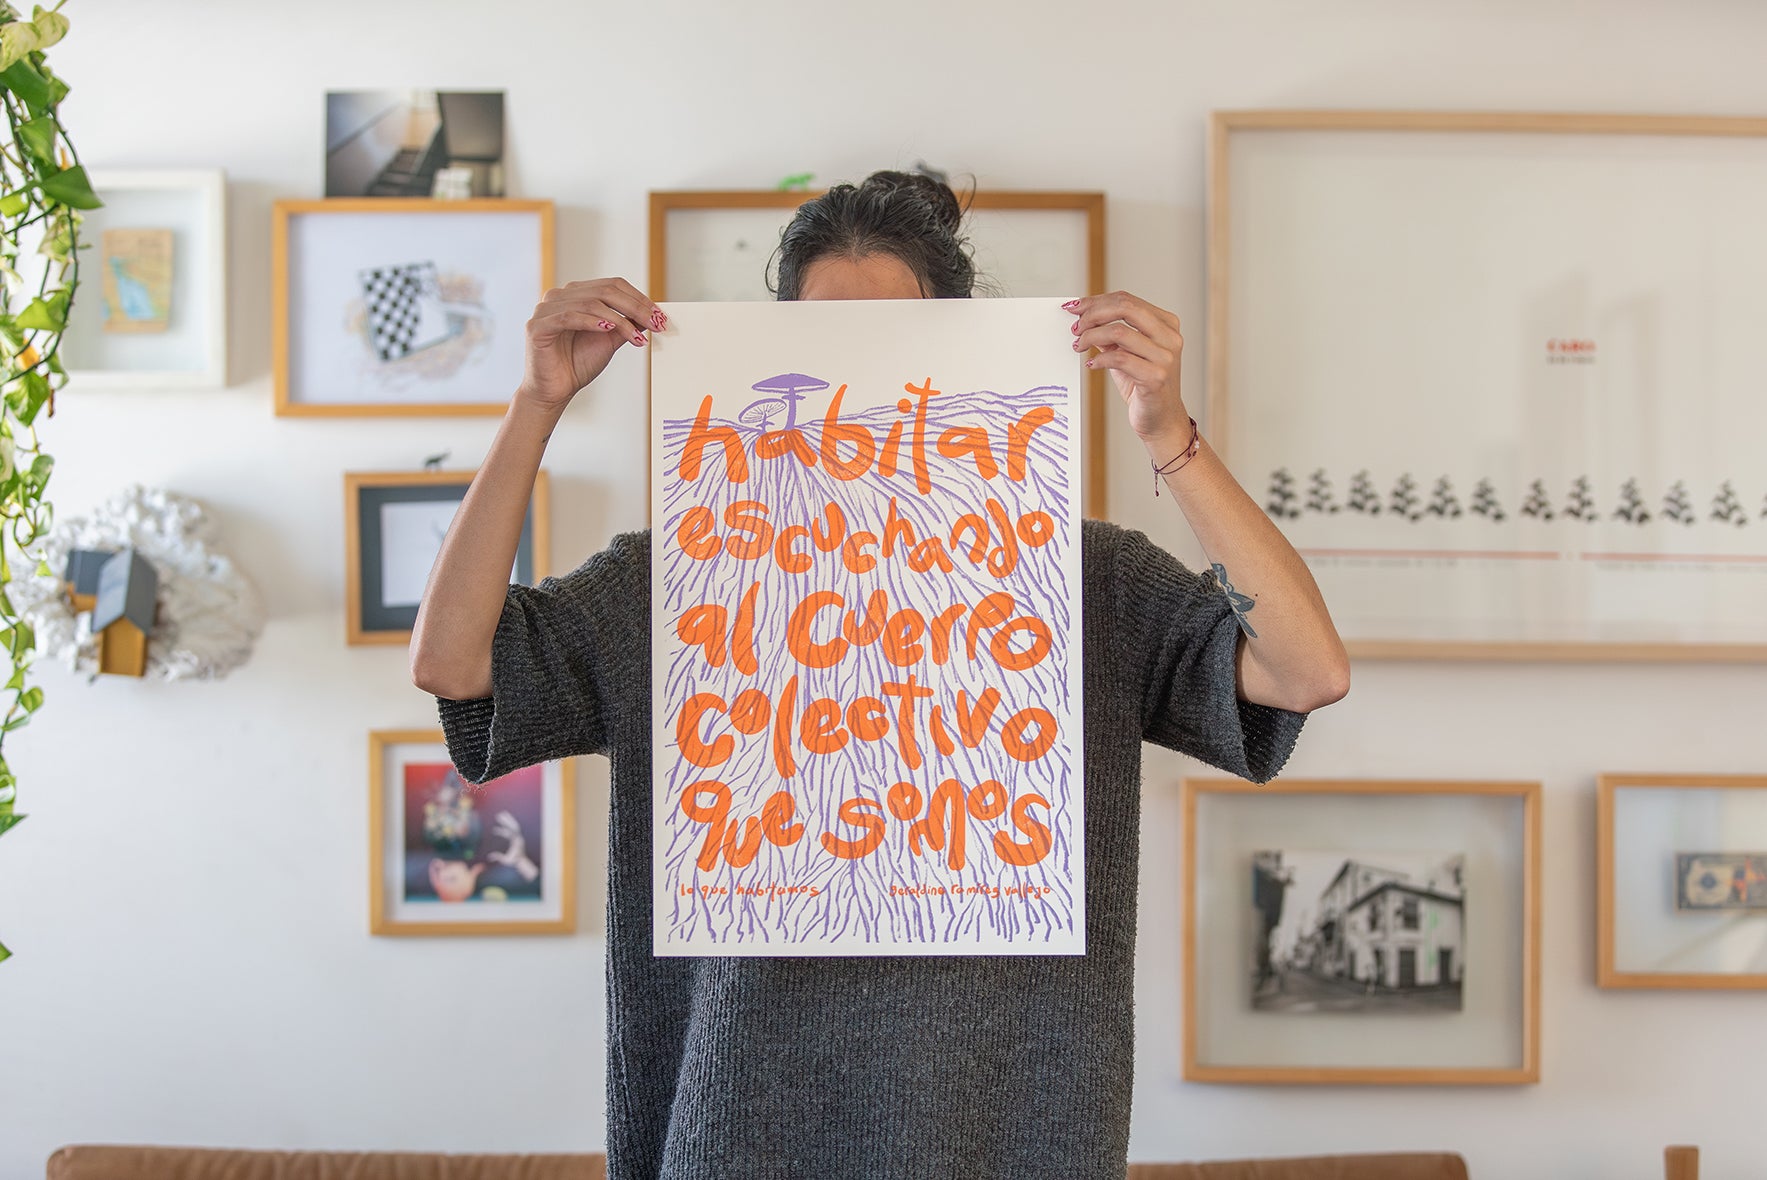 habitar
escuchando
al cuerpo
colectivo
que somos
lo que habitamos
Geraldine ramirez vallejo